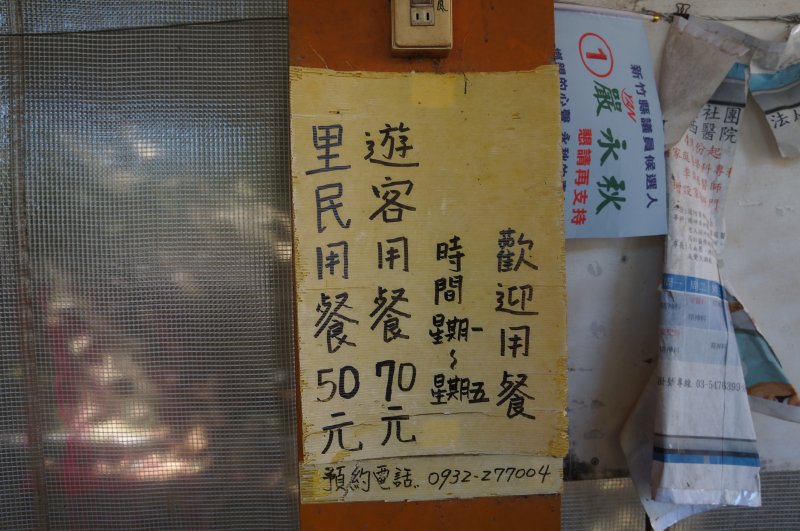 歡迎用餐
時間
星期一
~
星期五
遊客用餐70元
里民用餐50元
預約電話. 0932-277004
新竹縣議員候選人
1
嚴永秋
懇請再支持
社團
醫院
法人
份起
醫師
專線 03-5476399